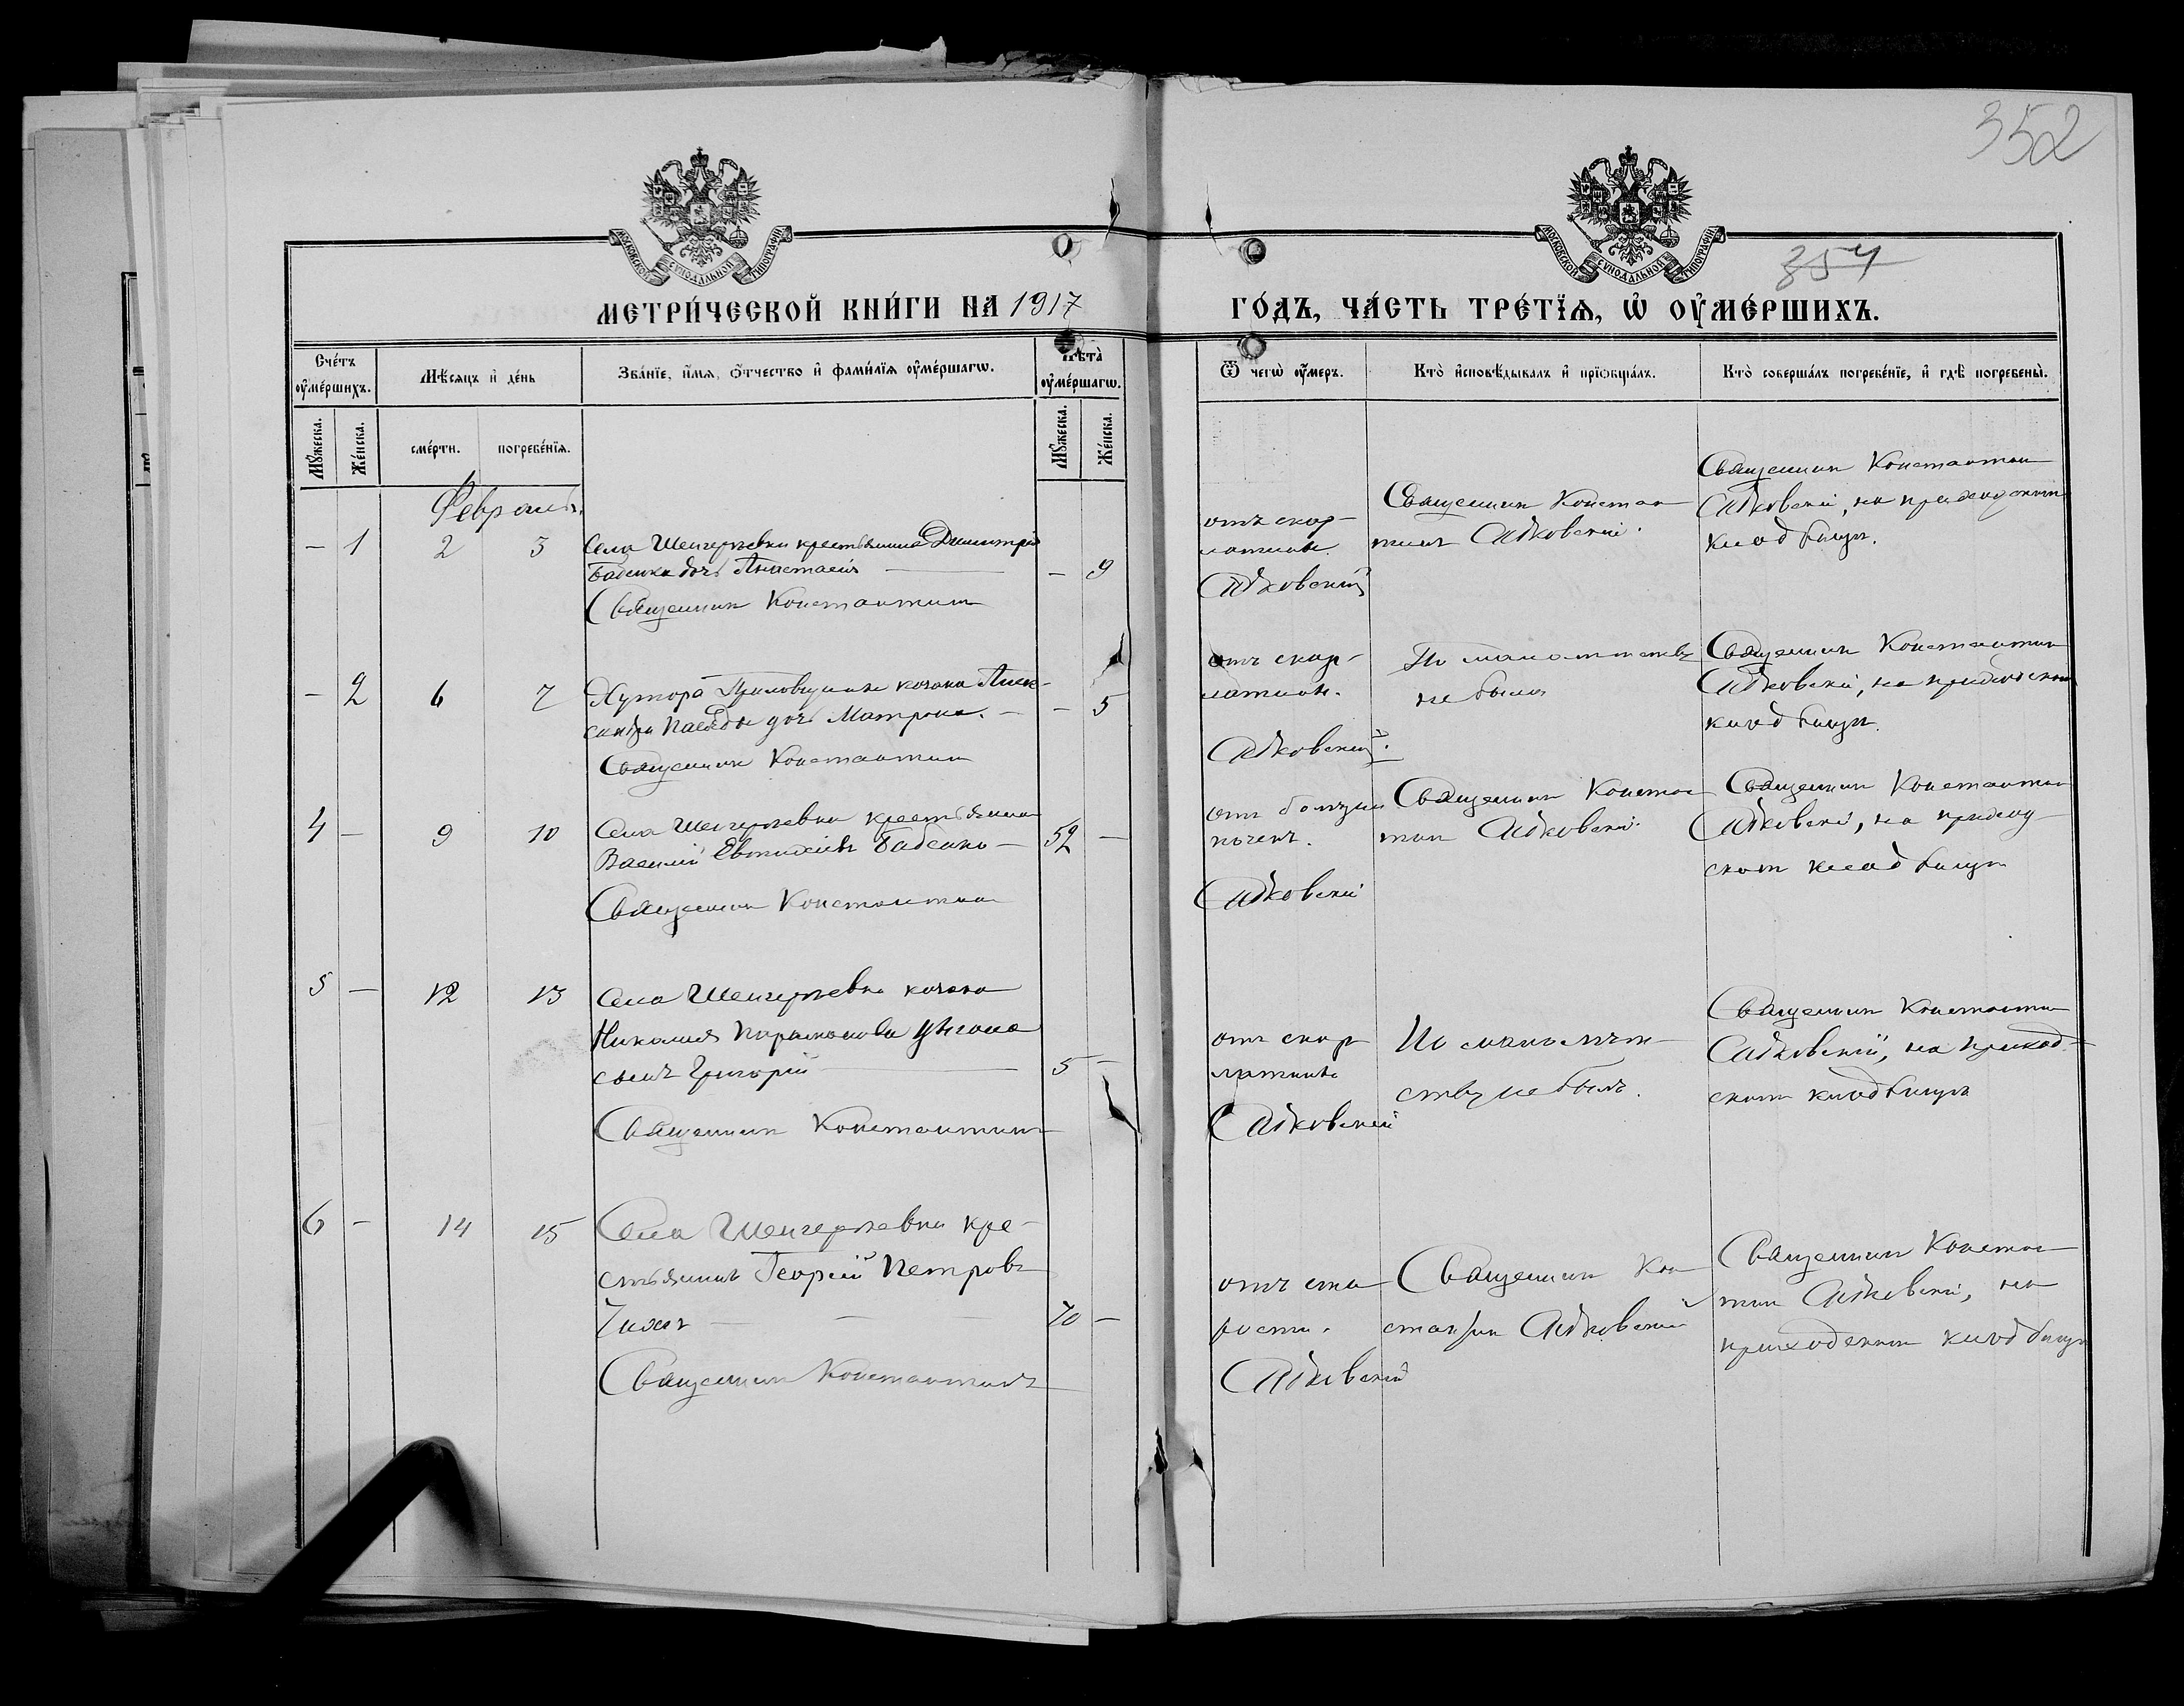 352
МОСКОВСКОЙ СѴНОДАЛЬНОЙ ТИПОГРАФІИ
МОСКОВСКОЙ СѴНОДАЛЬНОЙ ТИПОГРАФІИ
354
МЕТРИ́ЧЕСКОЙ КНИ́ГИ НА 1917
ГО́ДЪ, ЧА́СТЬ ТРЕ́ТЇѦ, Ѡ҆ ОУ҆МЕ́РШИХЪ.
Сче́тъ оу҆ме́ршихъ.
Мѣ́сѧцъ и҆ де́нь
Зва́нїе, и҆́мѧ, ѻ҆́тчество и҆ фами́лїѧ оу҆ме́ршагѡ.
Лѣ́та̀ оу҆ме́ршагѡ.
Ѿ чегѡ̀ оу҆́меръ.
Кто̀ и҆сповѣ́дывалъ и҆ прїѡбща́лъ.
Кто̀ соверша́лъ погребе́нїе, и҆ гдѣ̀ погребены̀.
Мꙋ́жеска.
Же́нска.
сме́рти.
погребе́нїѧ.
Мꙋ́жеска.
Же́нска.
Февраль.
— 1 2 3 Села крестьянина Димитрія
Бабенка дочь Анастасія — — 9
Священникъ Константинъ
отъ скар-
латины.
Садковскій
Священникъ Констан
тинъ Садковскій.
Священникъ Константин
Садковскій, на приходском
кладбищѣ.
— 2 6 7 Хутора козака Алек-
сандра дочь Матрона. — — 5
Священникъ Константинъ
отъ скар-
латины.
Садковскій.
По малолѣтству
не была
Священникъ Константин
Садковскій, на приходском
кладбищѣ.
4 — 9 10 Села крестьянинъ
Василій Евтихіевъ Бабенко — 52 —
Священникъ Константин
отъ болѣзни
почекъ.
Садковскій
Священникъ Констан
тин Садковскій.
Священникъ Константин
Садковскій, на приход-
скомъ кладбищѣ
5 — 12 13 Села козака
Николая Парамонова
сынъ Григорій — 5 —
Священникъ Константинъ
отъ скар
латины
Садковскій
По малолѣт-
ству не былъ.
Священникъ Константин
Садковскій, на приход-
скомъ кладбищѣ
6 — 14 15 Села кре-
стьянинъ Георгій Петровъ
— — 70 —
Священникъ Константинъ
отъ ста
рости.
Садковскій
Священникъ Кон
стантин Садковскій
Священникъ Констан
тин Садковскій, на
приходскомъ кладбищѣ